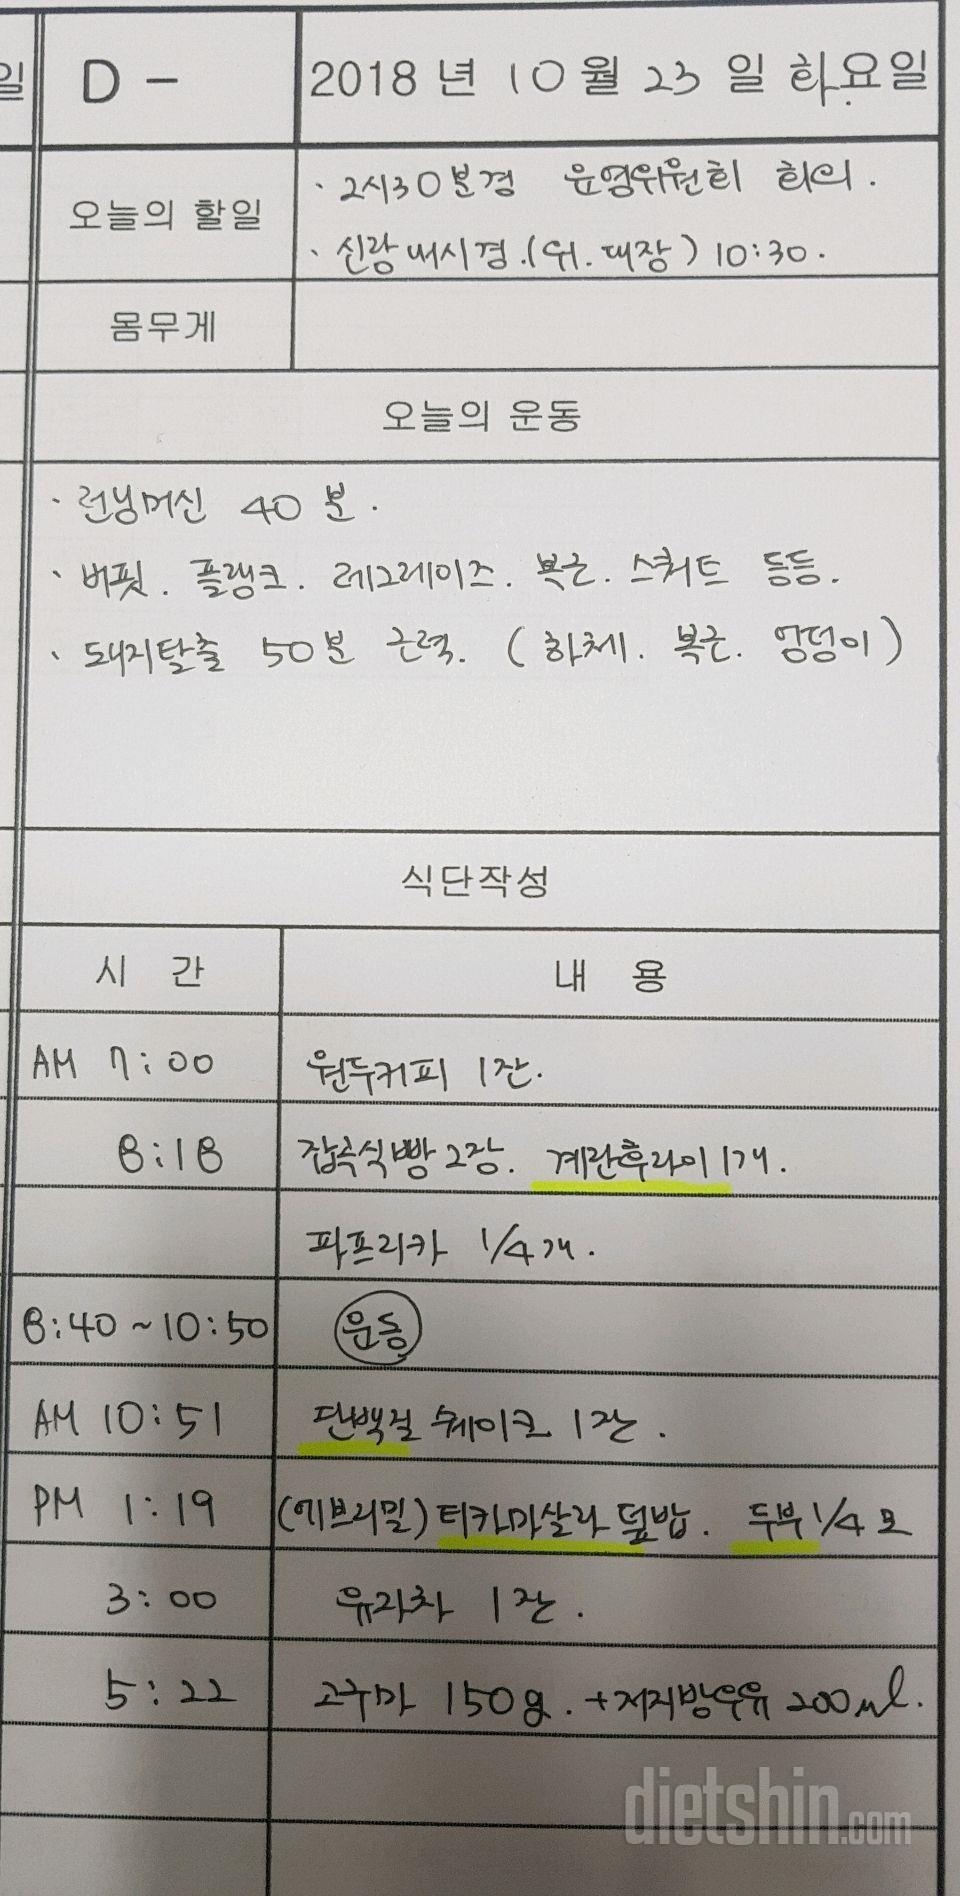 일 D - 2018 년 10 월 23 일 화요일
오늘의 할일
· 2시30분경 운영위원회 회의.
· 신랑 내시경.(위.대장) 10:30.
몸무게
오늘의 운동
· 런닝머신 40 분.
· 버핏. 플랭크. 레그레이즈. 복근. 스쿼트 등등.
· 돼지탈출 50분 근력. (하체. 복근. 엉덩이)
식단작성
시 간 내 용
AM 7:00 원두커피 1잔.
8:18 잡곡식빵 2장. 계란후라이 1개.
파프리카 1/4개.
8:40 ~ 10:50 운동
AM 10:51 단백질 쉐이크 1잔.
PM 1:19 (에브리밀) 티카마살라 덮밥. 두부 1/4 모
3:00 유자차 1잔.
5:22 고구마 150g. +저지방우유 200ml.
dietshin.com